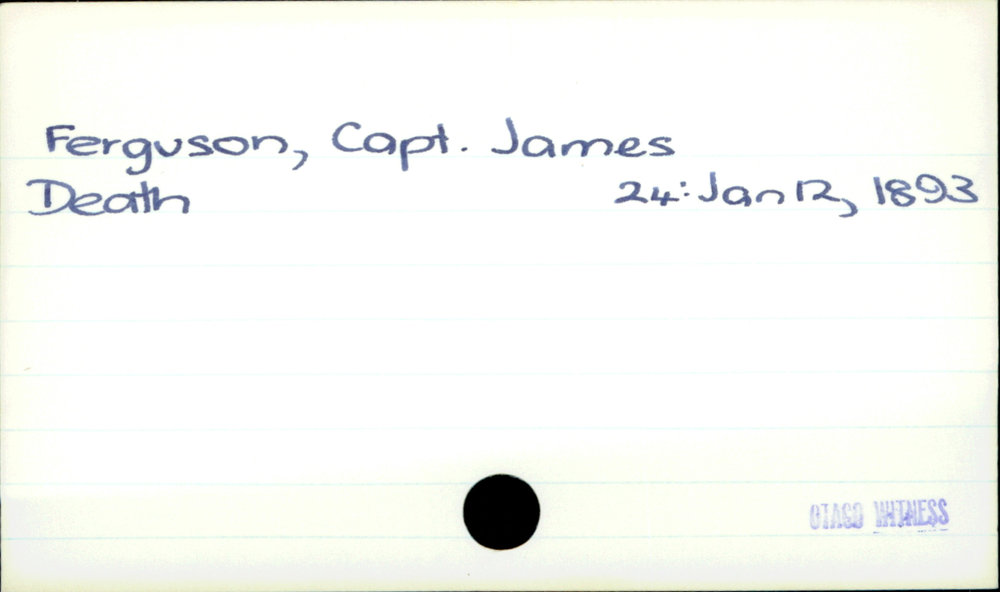 Ferguson, Capt. James
Death 24: Jan 12, 1893
OTAGO WITNESS